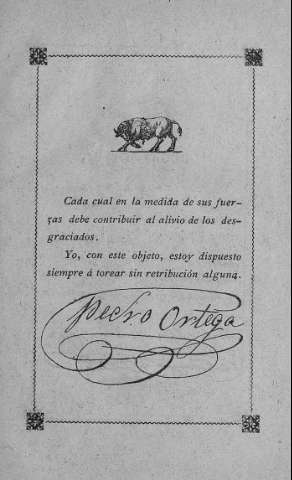 Cada cual en la medida de sus fuer-
zas debe contribuir al alivio de los des-
graciados.
Yo, con este objeto, estoy dispuesto
siempre á torear sin retribución alguna.
Pedro Ortega